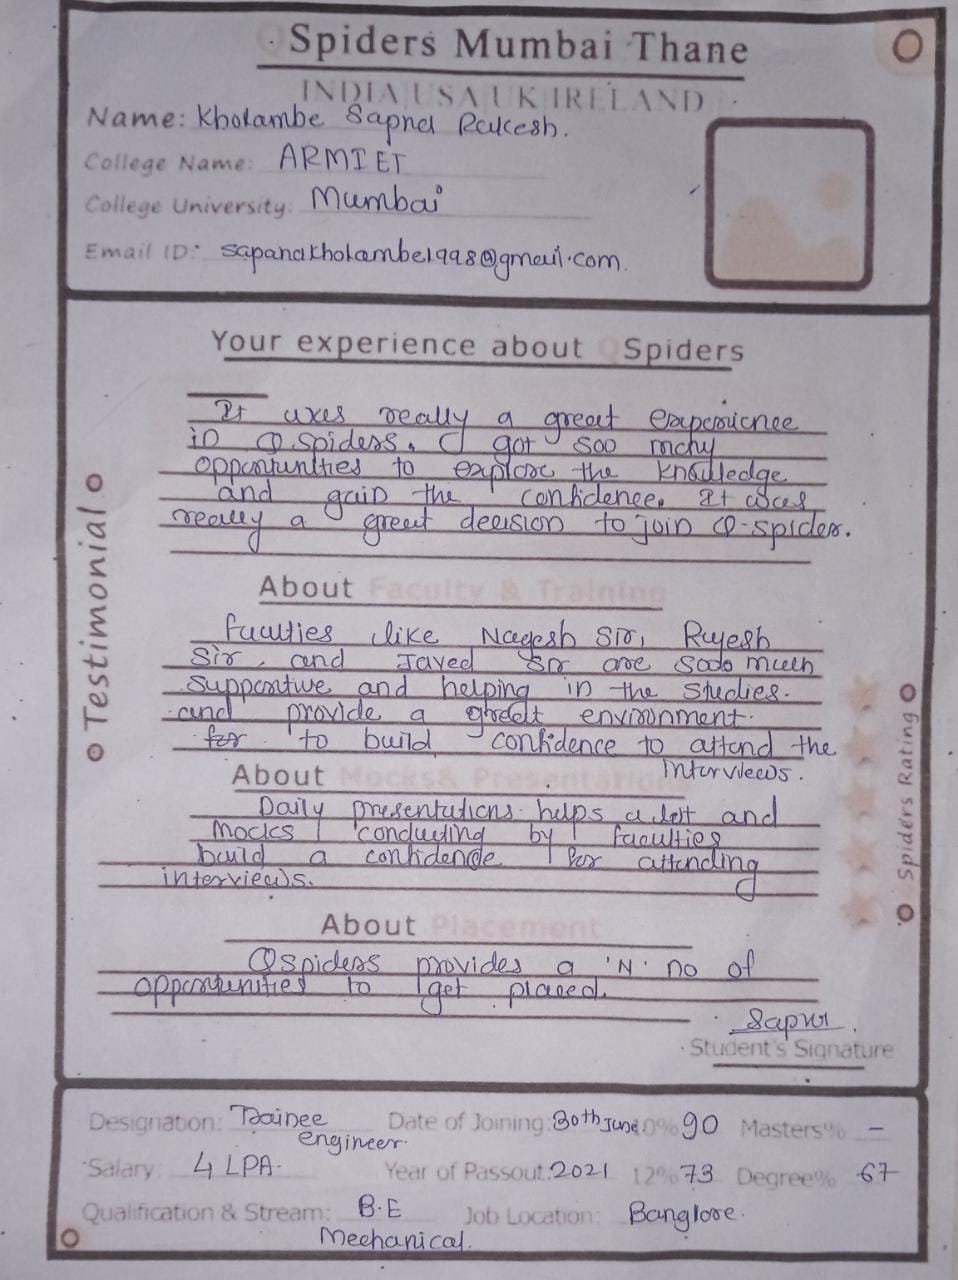 QSpiders Mumbai Thane
INDIA|USA|UK|IRELAND
Name: Kholambe Sapna Rakesh.
College Name: ARMIET
College University: Mumbai
Email ID: sapanakholambe1998@gmail.com.
Your experience about QSpiders
It was really a great experience
in Q spiders. I got soo mchy
opportunities to explore the knowledge
and gain the confidence. It was
really a great decision to join Q-spider.
Testimonial
About Faculty & Training
faculties like Nagesh Sir, Rajesh
Sir, and Javed Sir are sooo much
supportive and helping in the studies.
and provide a great environment.
for to build confidence to attend the
interviews.
About Mocks& Presentations
Daily presentations helps a lot and
Mocks conducting by faculties
build a confidence for attending
interviews.
Spiders Rating
About Placement
Qspiders provides a 'N' no of
opportunities to get placed.
Sapna
Student's Signature
Designation: Trainee Date of Joining: 30th June 10% 90 Masters% -
engineer.
Salary: 4 LPA. Year of Passout: 2021 12% 73 Degree% 67
Qualification & Stream: B.E Job Location: Banglore.
Mechanical.